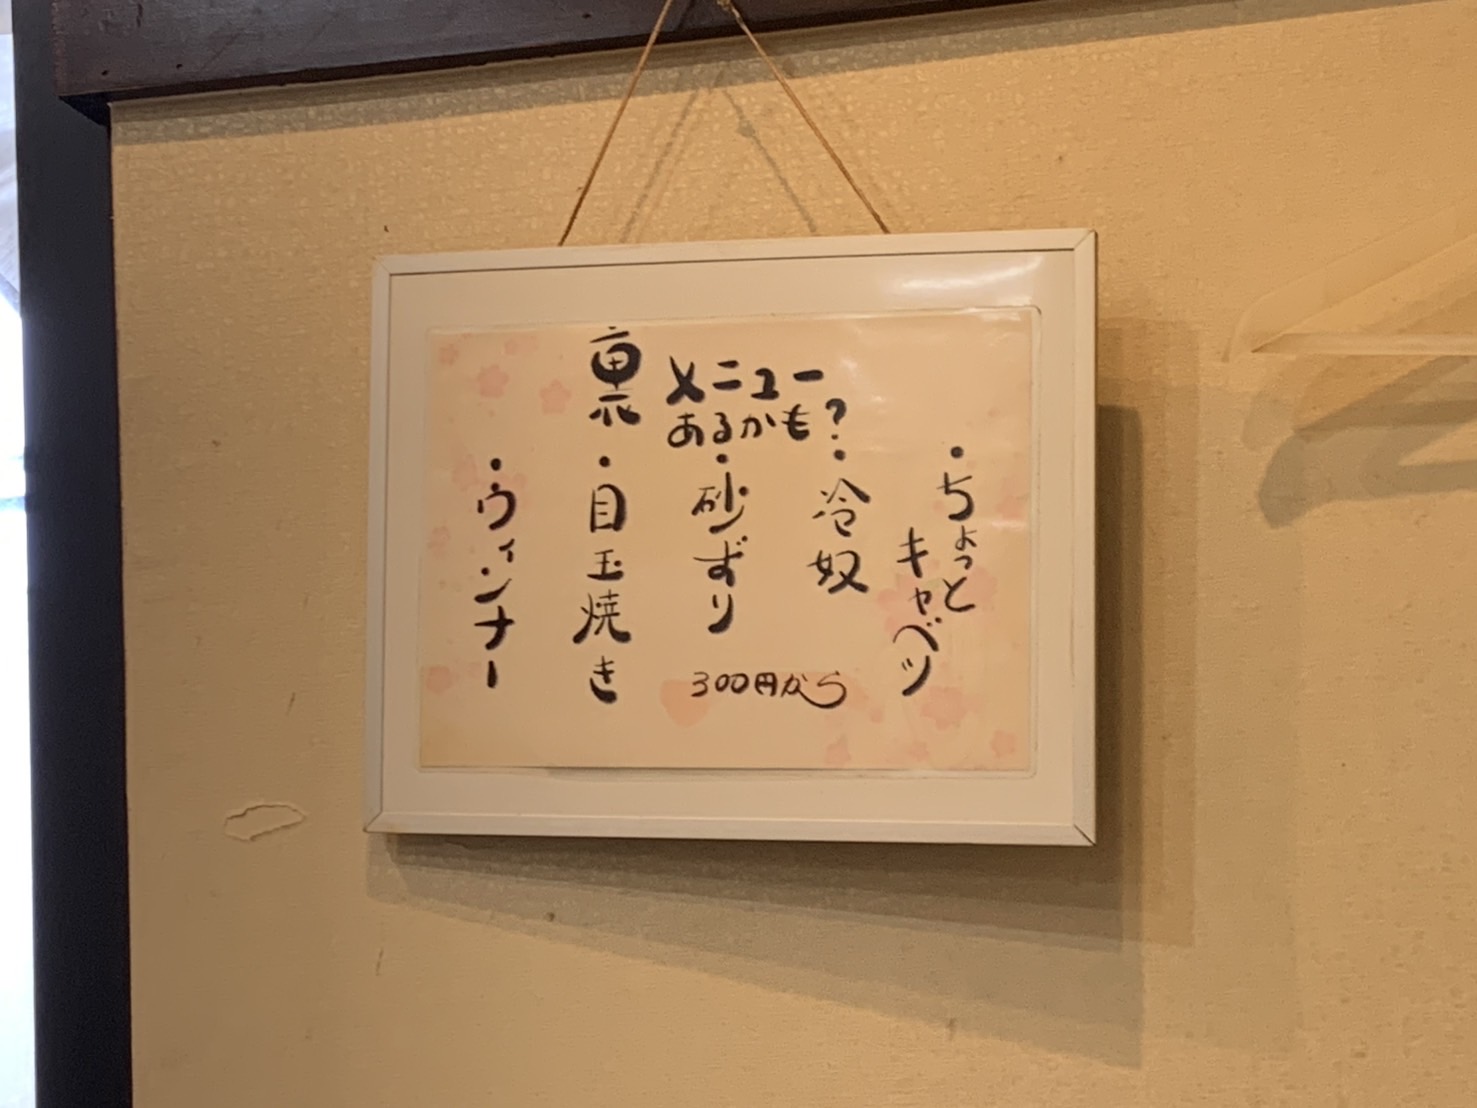 裏メニュー
あるかも?
・ちょっと
キャベツ
・冷奴
・砂ずり
・目玉焼き
・ウィンナー
300円から